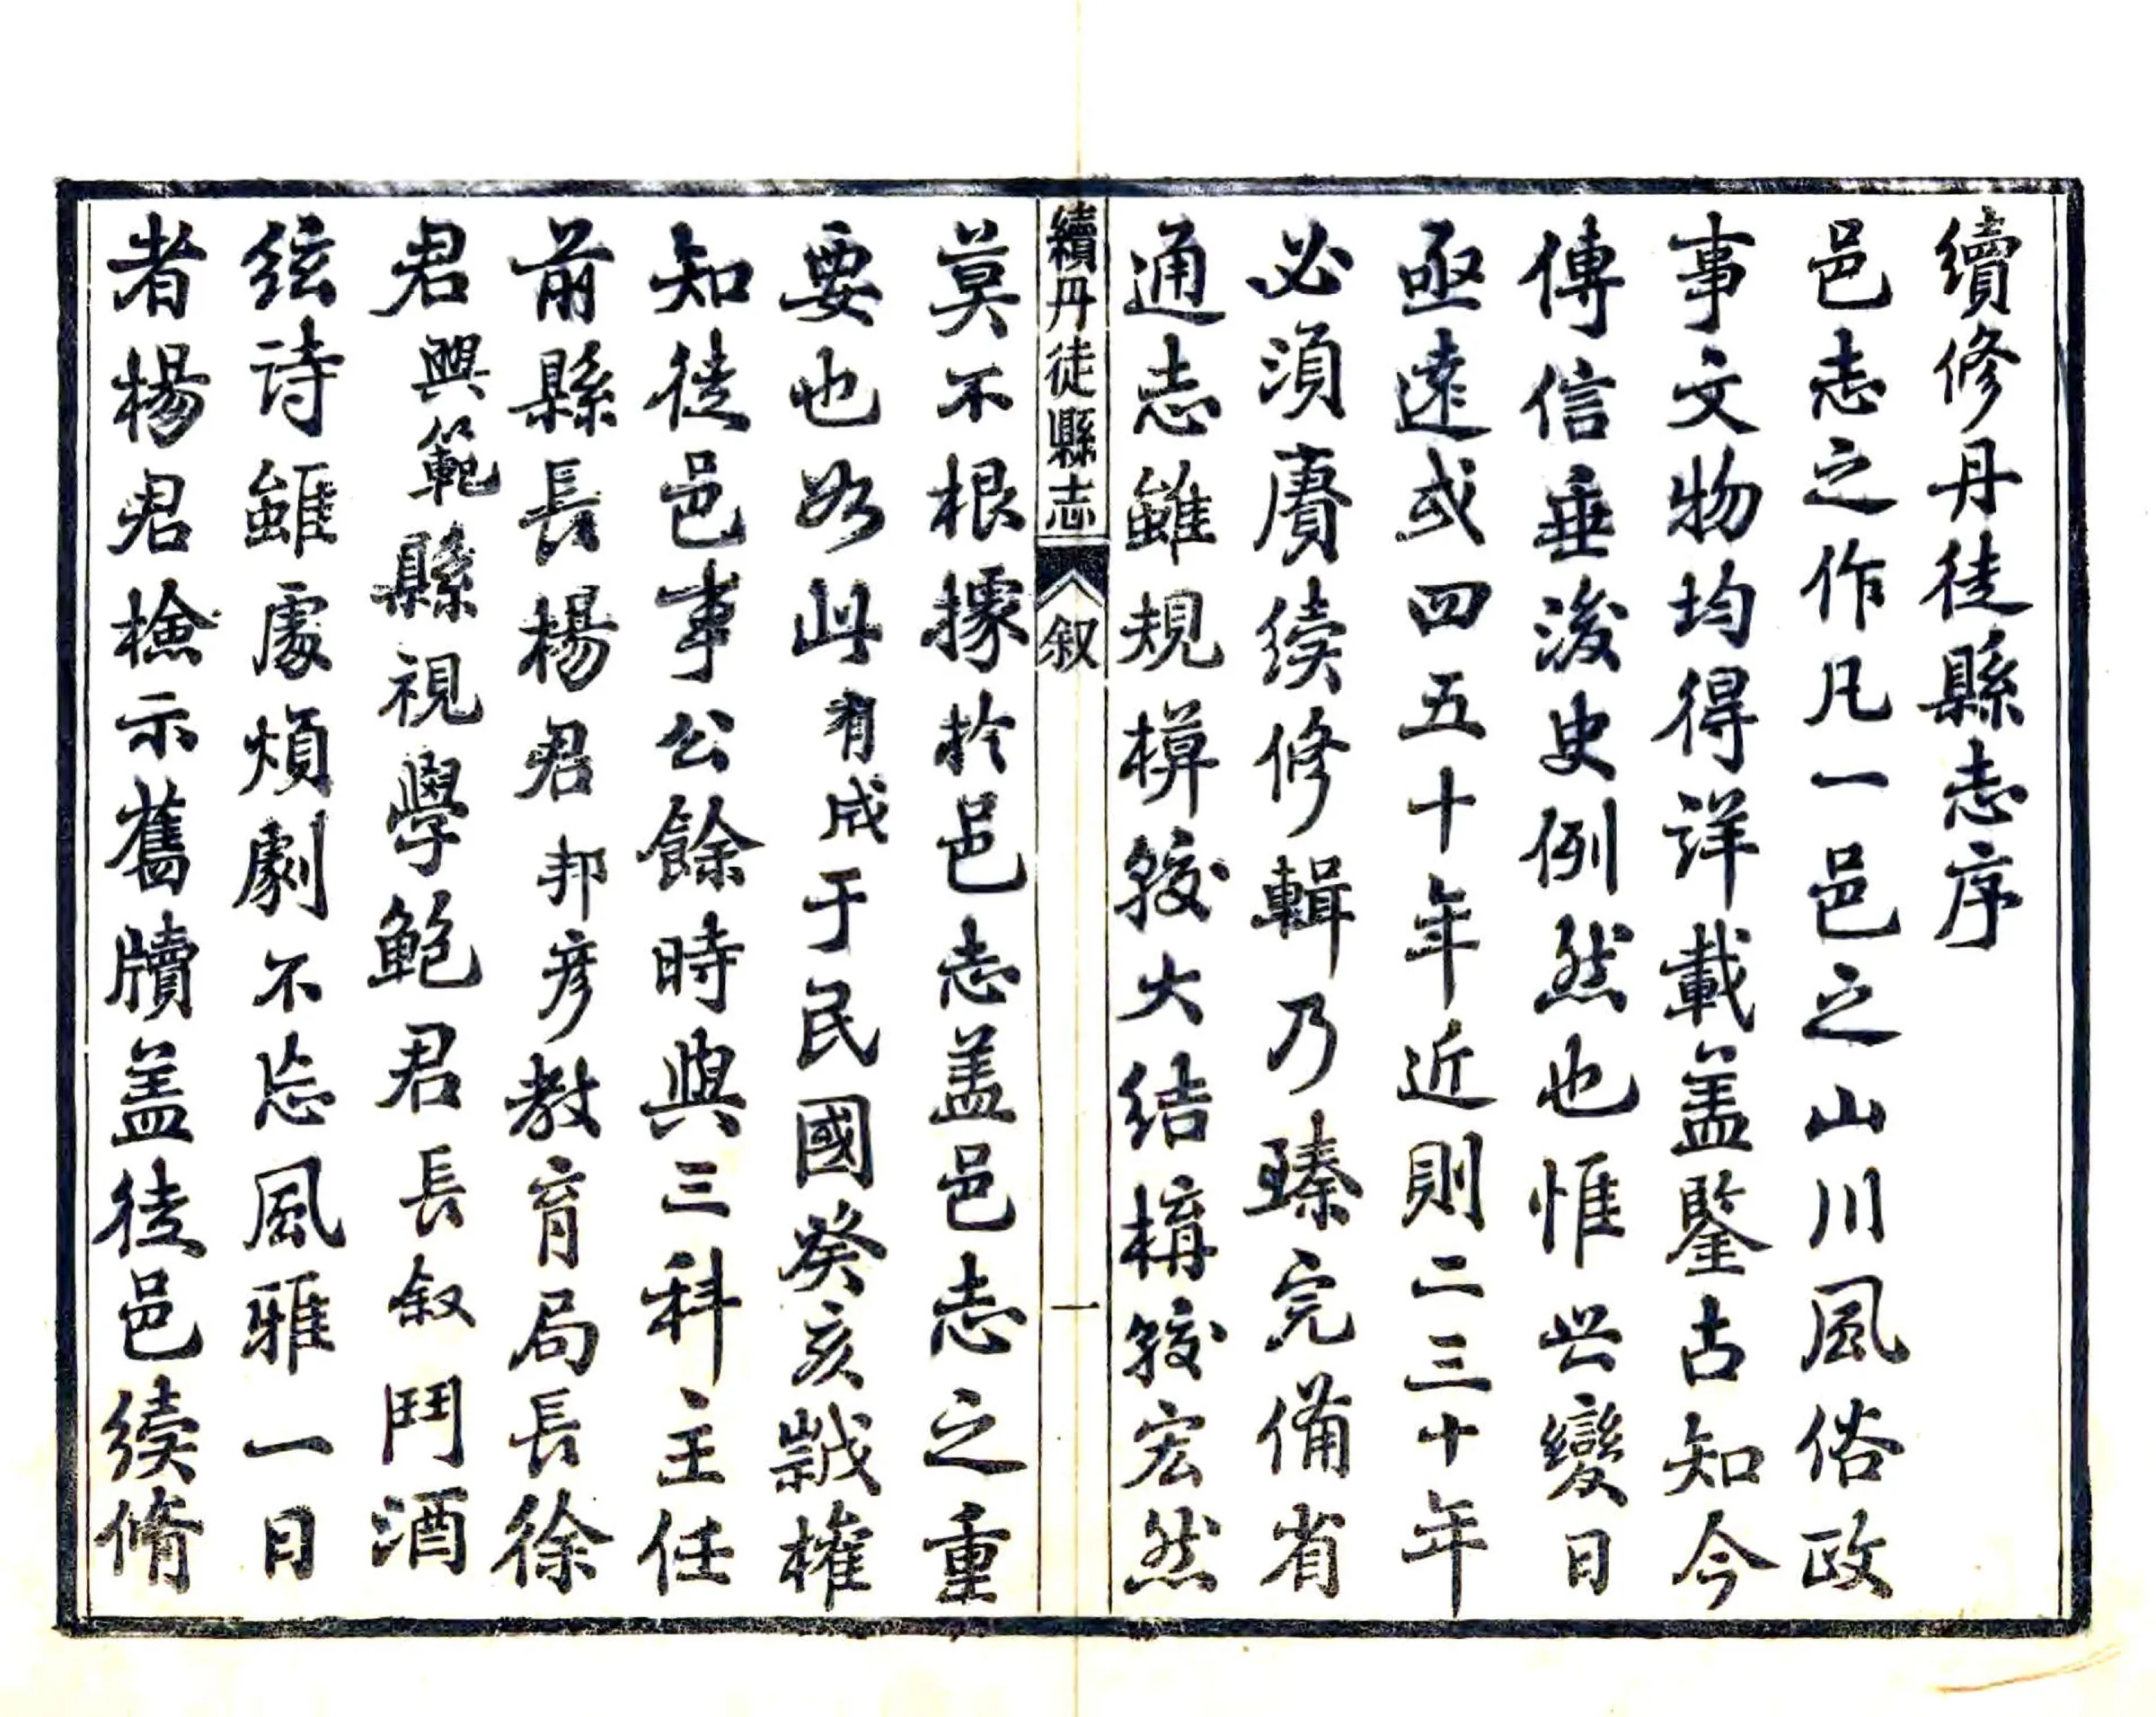 續修丹徒縣志序
邑志之作凡一邑之山川風俗政
事文物均得詳載盖鑒古知今
傳信垂後史例然也惟世變日
亟遠或四五十年近則二三十年
必須賡续修輯乃臻完備省
通志雖規模較大结構較宏然
續丹徒縣志
叙
一
莫不根據於邑志盖邑志之重
要也如此有成于民國癸亥識權
知徒邑事公餘時與三科主任
前縣長楊君邦彦教育局長徐
君興範縣視學鲍君長叙鬥酒
絃诗雖處煩劇不忘風雅一日
者楊君檢示舊牘盖徒邑续脩